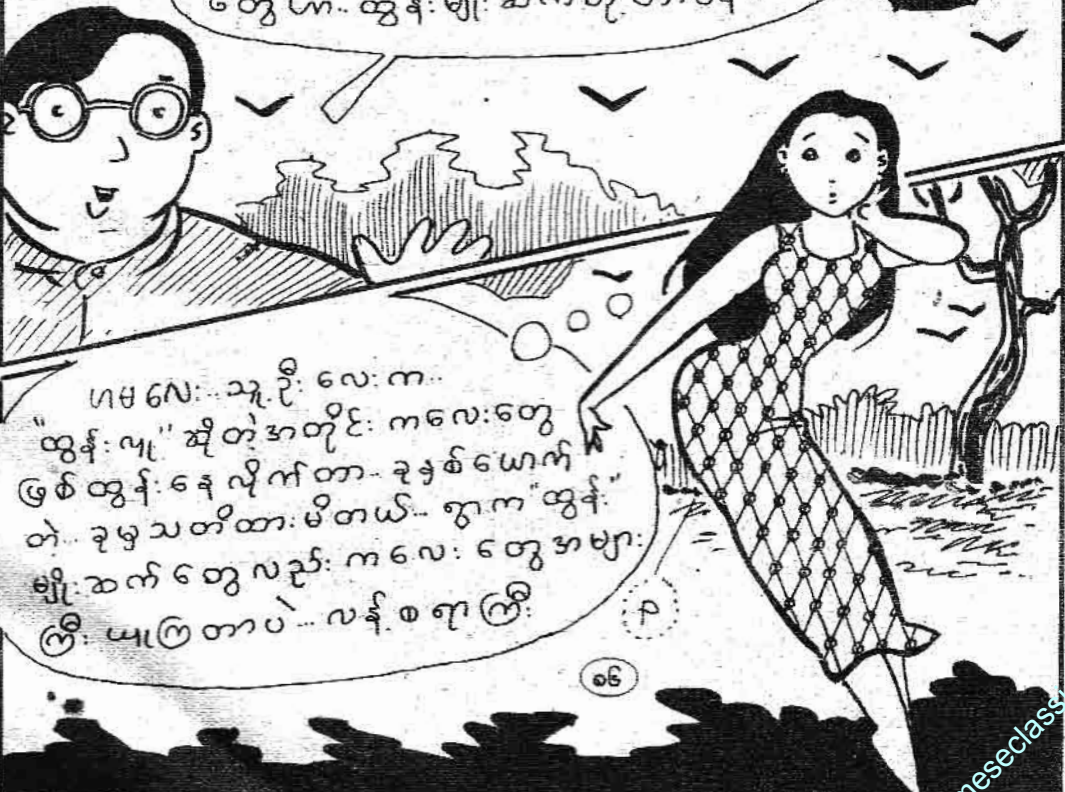 တွေဟာ.. ထွန်းမျိုးဆက်တို့
ဟမလေး.. သူ့ဦးလေးက..
"ထွန်းလှ" ဆိုတဲ့အတိုင်း ကလေးတွေ
ဖြစ်ထွန်းနေလိုက်တာ.. ခုနှစ်ယောက်
တဲ့.. ခုမှသတိထားမိတယ်... ရွာက "ထွန်း"
မျိုးဆက်တွေလည်း ကလေးတွေအများ
ကြီး ယူကြတာပဲ... လန့်စရာကြီး
၃၆
neseclass